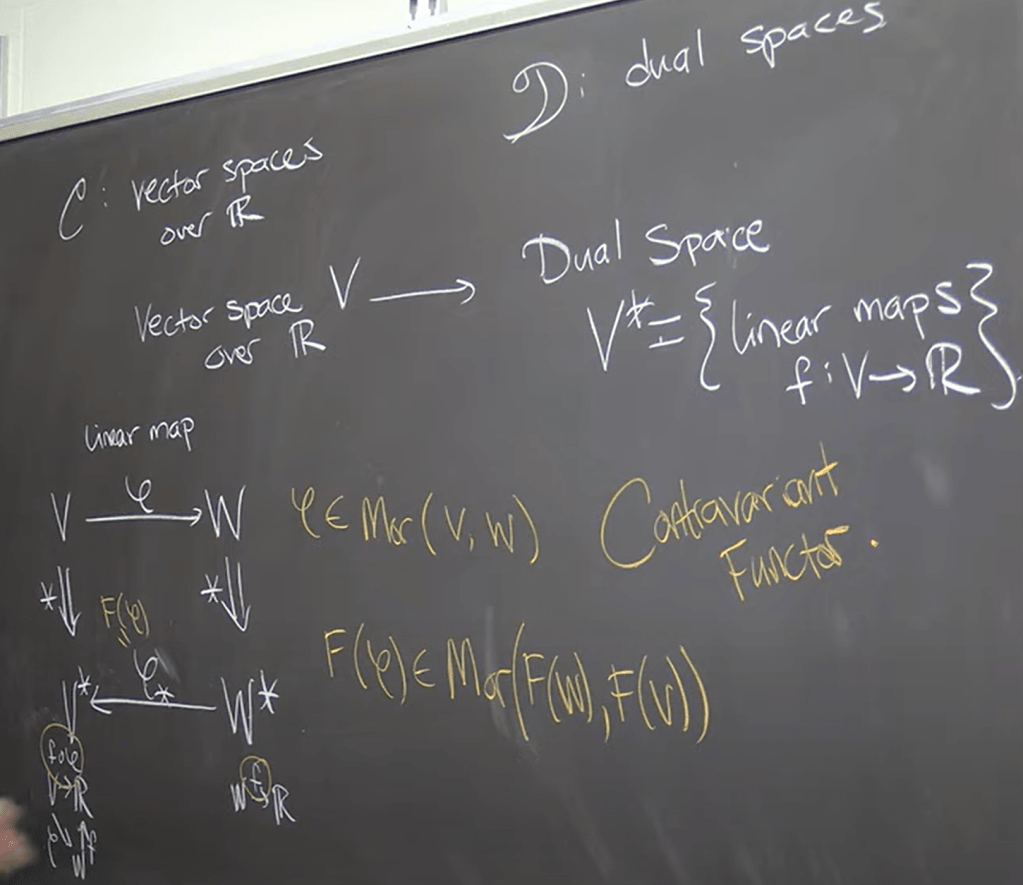 𝒟: dual spaces
C: vector spaces
over ℝ
Vector space V ⟶
over ℝ
Dual Space
V* = {linear maps
f: V → ℝ}.
linear map
V —φ→ W
φ ∈ Mor(V, W)
Contravariant
Functor.
*⇓ *⇓
F(φ)
=
V* ←φ_*— W*
F(φ) ∈ Mor(F(W), F(V))
f∘φ
V → ℝ
W f→ ℝ
φ↘ ↗f
W